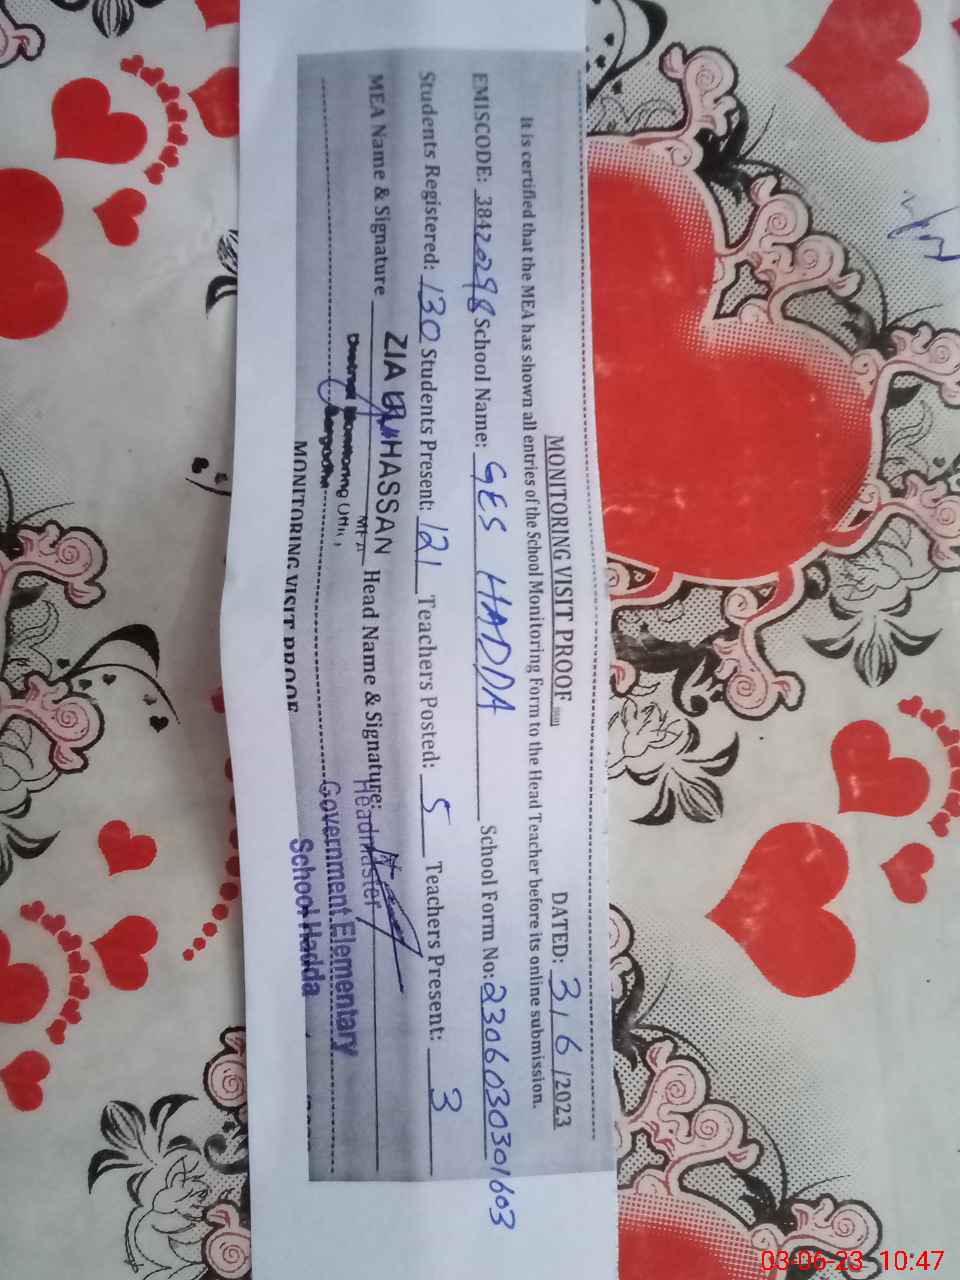 MONITORING VISIT PROOF
DATED: 3/6/2023
It is certified that the MEA has shown all entries of the School Monitoring Form to the Head Teacher before its online submission.
EMISCODE: 38420298 School Name: GES HADDA School Form No: 2306030301603
Students Registered: 130 Students Present: 121 Teachers Posted: 5 Teachers Present: 3
MEA Name & Signature ZIA UL HASSAN Head Name & Signature:
MEA
Headmaster
Monitoring
Government Elementary
Sargodha
School Hadda
MONITORING VISIT PROOF
03-06-23 10:47